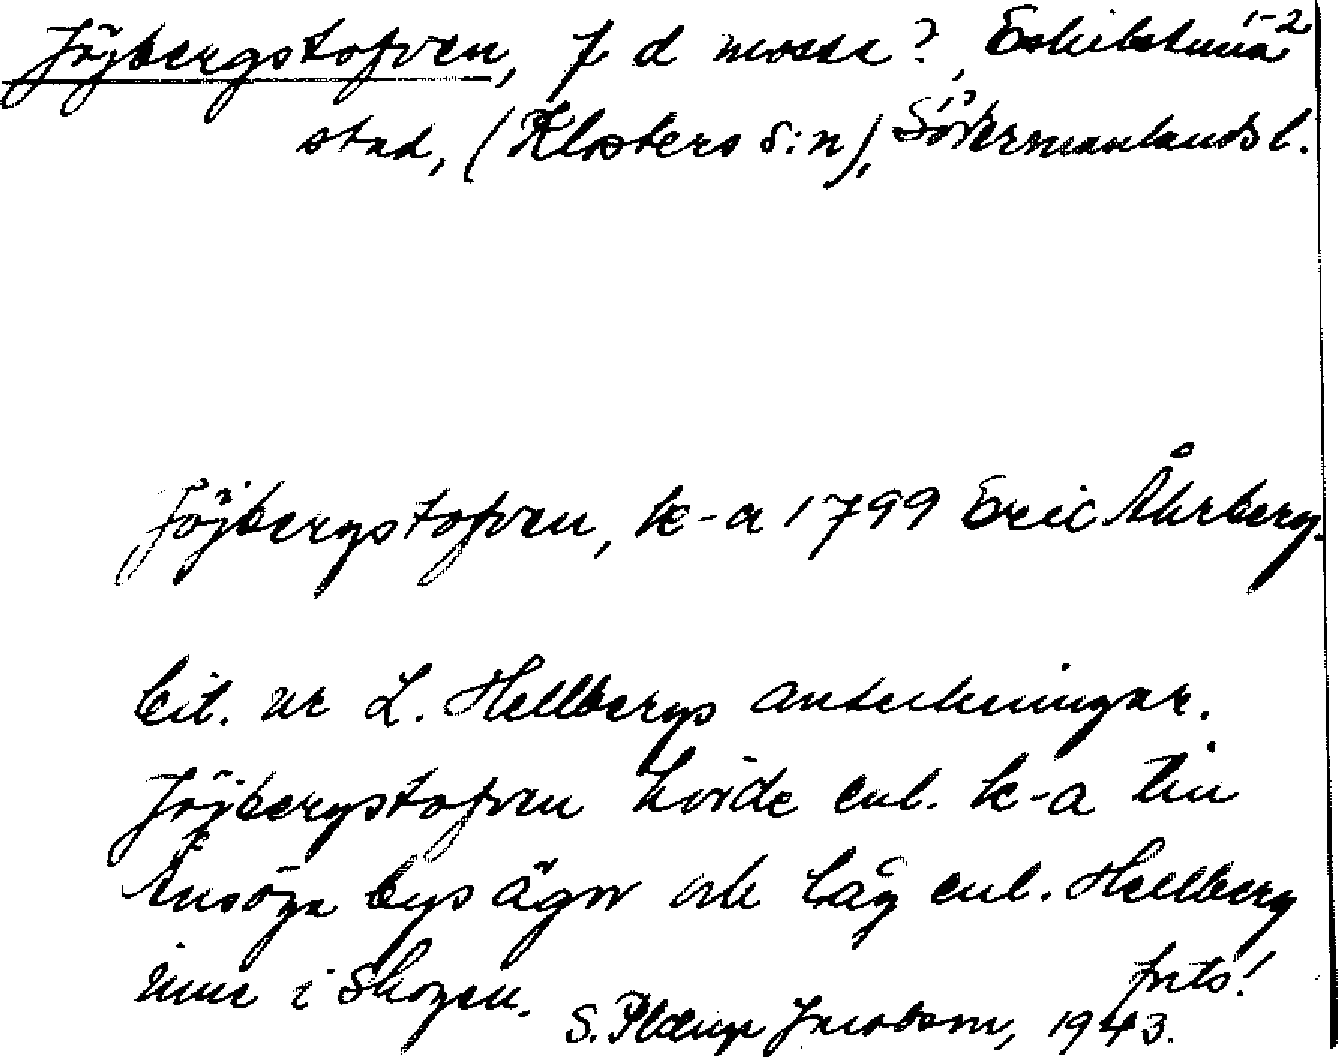 Jöjbergstofven, f d mosse?, Eskilstuna 1-2
stad, (Klosters s:n), Södermanlands l.
Jöjbergstofven, k-a 1799 Eric Åhrberg.
Cit. ur L. Hellbergs anteckningar.
Jöjbergstofven hörde enl. k-a till
Ånsöga bys ägor och låg enl. Hellberg
inne i skogen. frts!
S. Plærup Jacobson, 1943.